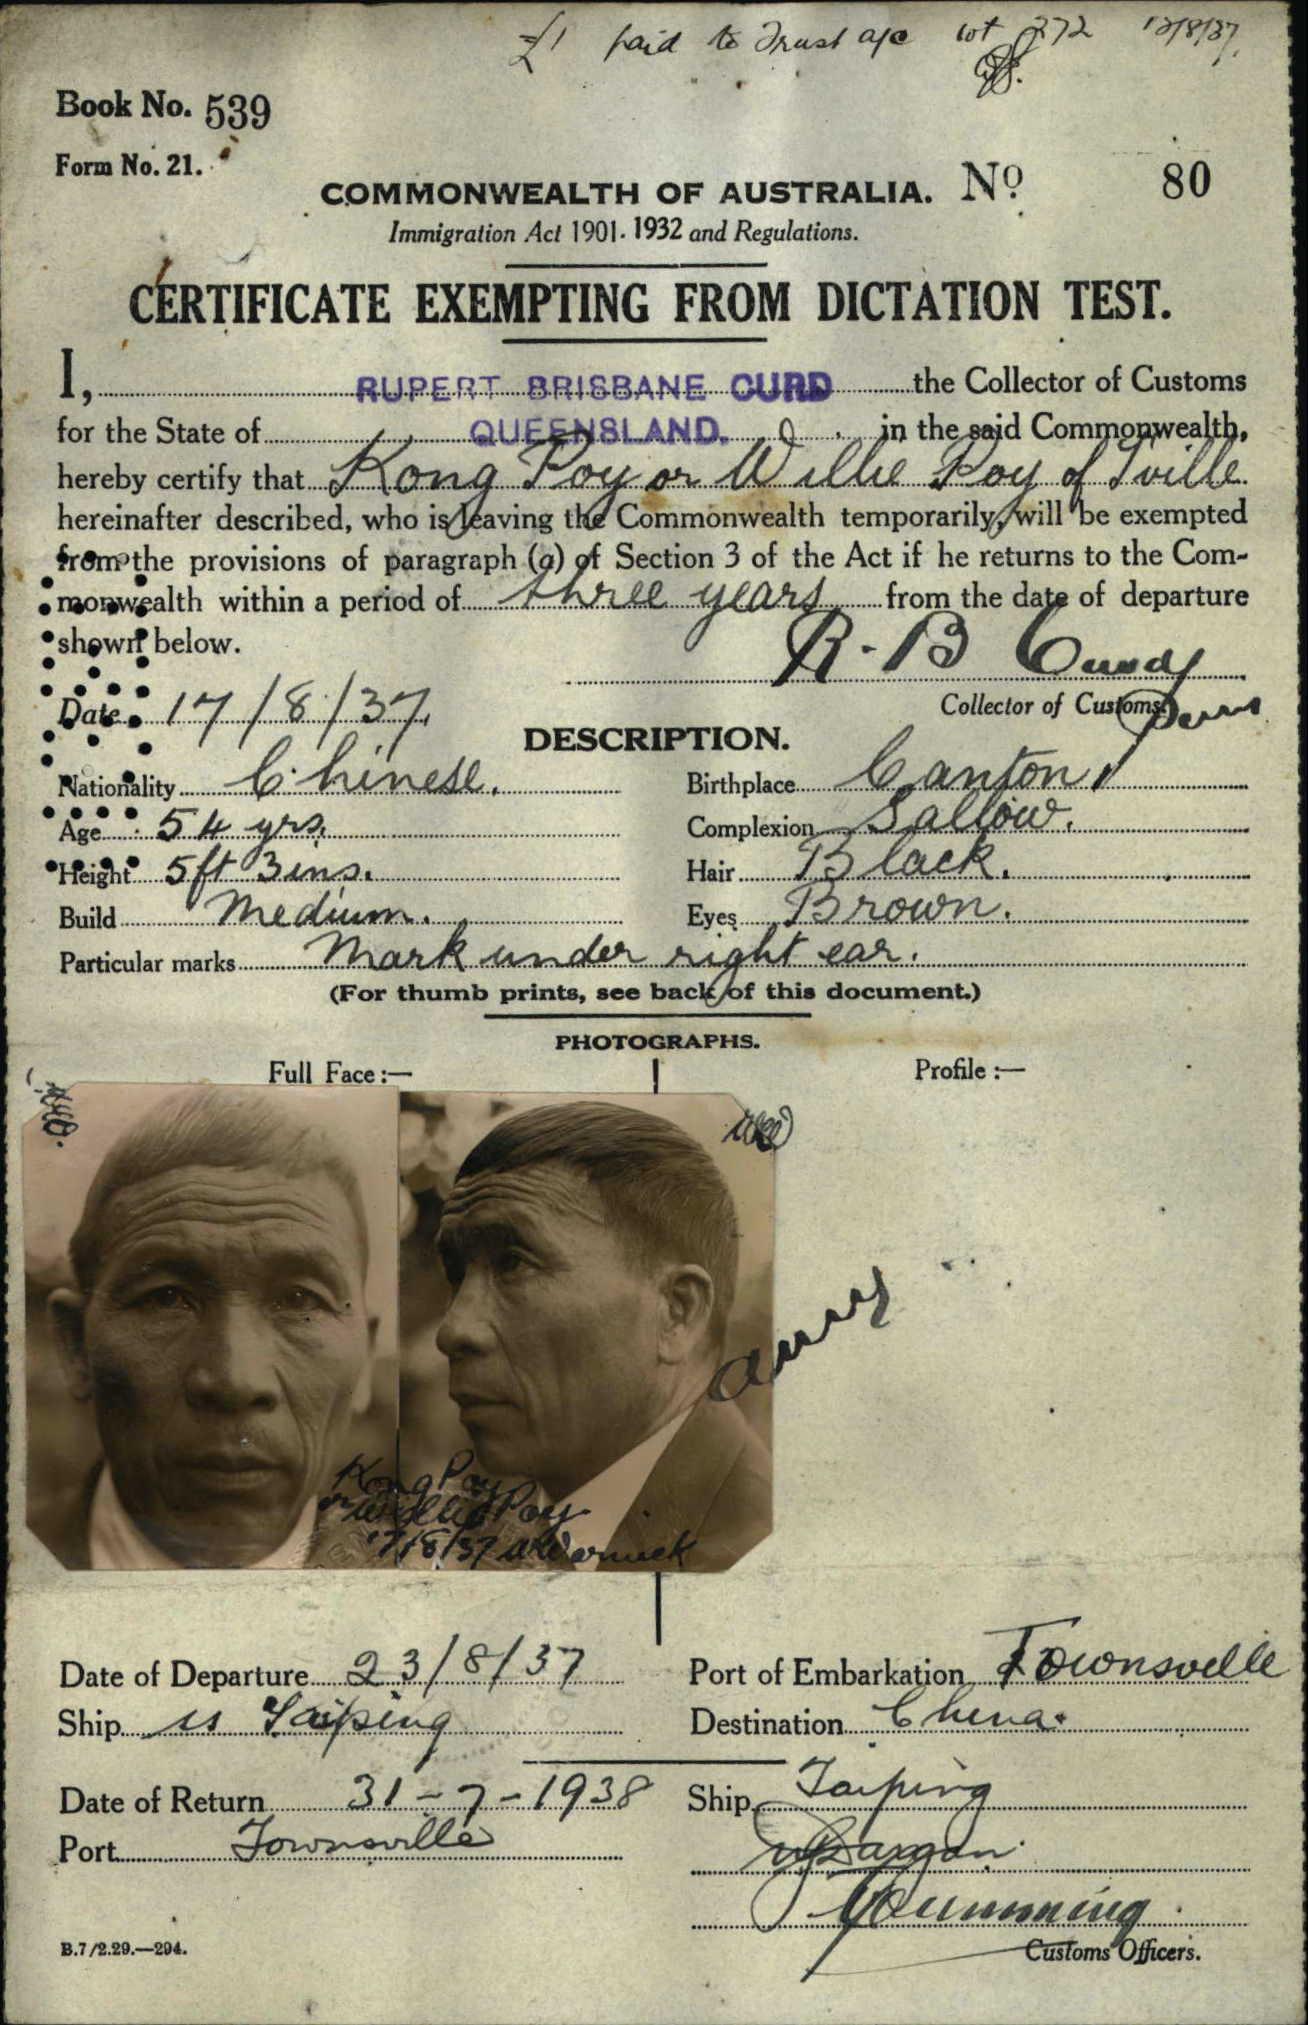 £1 paid to Trust a/c lot 272 12/8/37.
Book No. 539
Form No. 21.
COMMONWEALTH OF AUSTRALIA. No. 80
Immigration Act 1901-1932 and Regulations.
CERTIFICATE EXEMPTING FROM DICTATION TEST.
I, RUPERT BRISBANE CURD the Collector of Customs
for the State of QUEENSLAND. in the said Commonwealth,
hereby certify that Kong Poy or Willie Poy of T'ville
hereinafter described, who is leaving the Commonwealth temporarily, will be exempted
from the provisions of paragraph (a) of Section 3 of the Act if he returns to the Com-
monwealth within a period of three years from the date of departure
shown below.
R. B Curd
Date 17/8/37. Collector of Customs.
DESCRIPTION.
Nationality Chinese. Birthplace Canton
Age 54 yrs. Complexion Sallow.
Height 5ft 3ins. Hair Black.
Build Medium. Eyes Brown.
Particular marks Mark under right ear.
(For thumb prints, see back of this document.)
PHOTOGRAPHS.
Full Face:— Profile:—
Kong Poy
or Willie Poy
17/8/37
Date of Departure 23/8/37 Port of Embarkation Townsville
Ship ss Taiping Destination China.
Date of Return 31-7-1938 Ship Taiping
Port Townsville
Cumming
B.7/2.29.—294. Customs Officers.